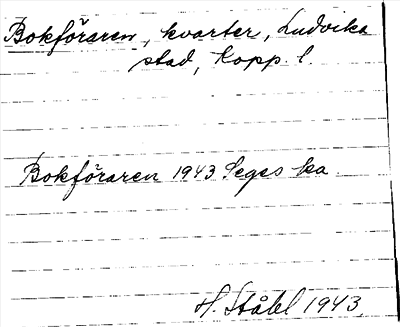 Bokföraren, kvarter, Ludvika
stad, Kopp. l.
Bokföraren 1943 Seges ka.
H. Ståhl 1943